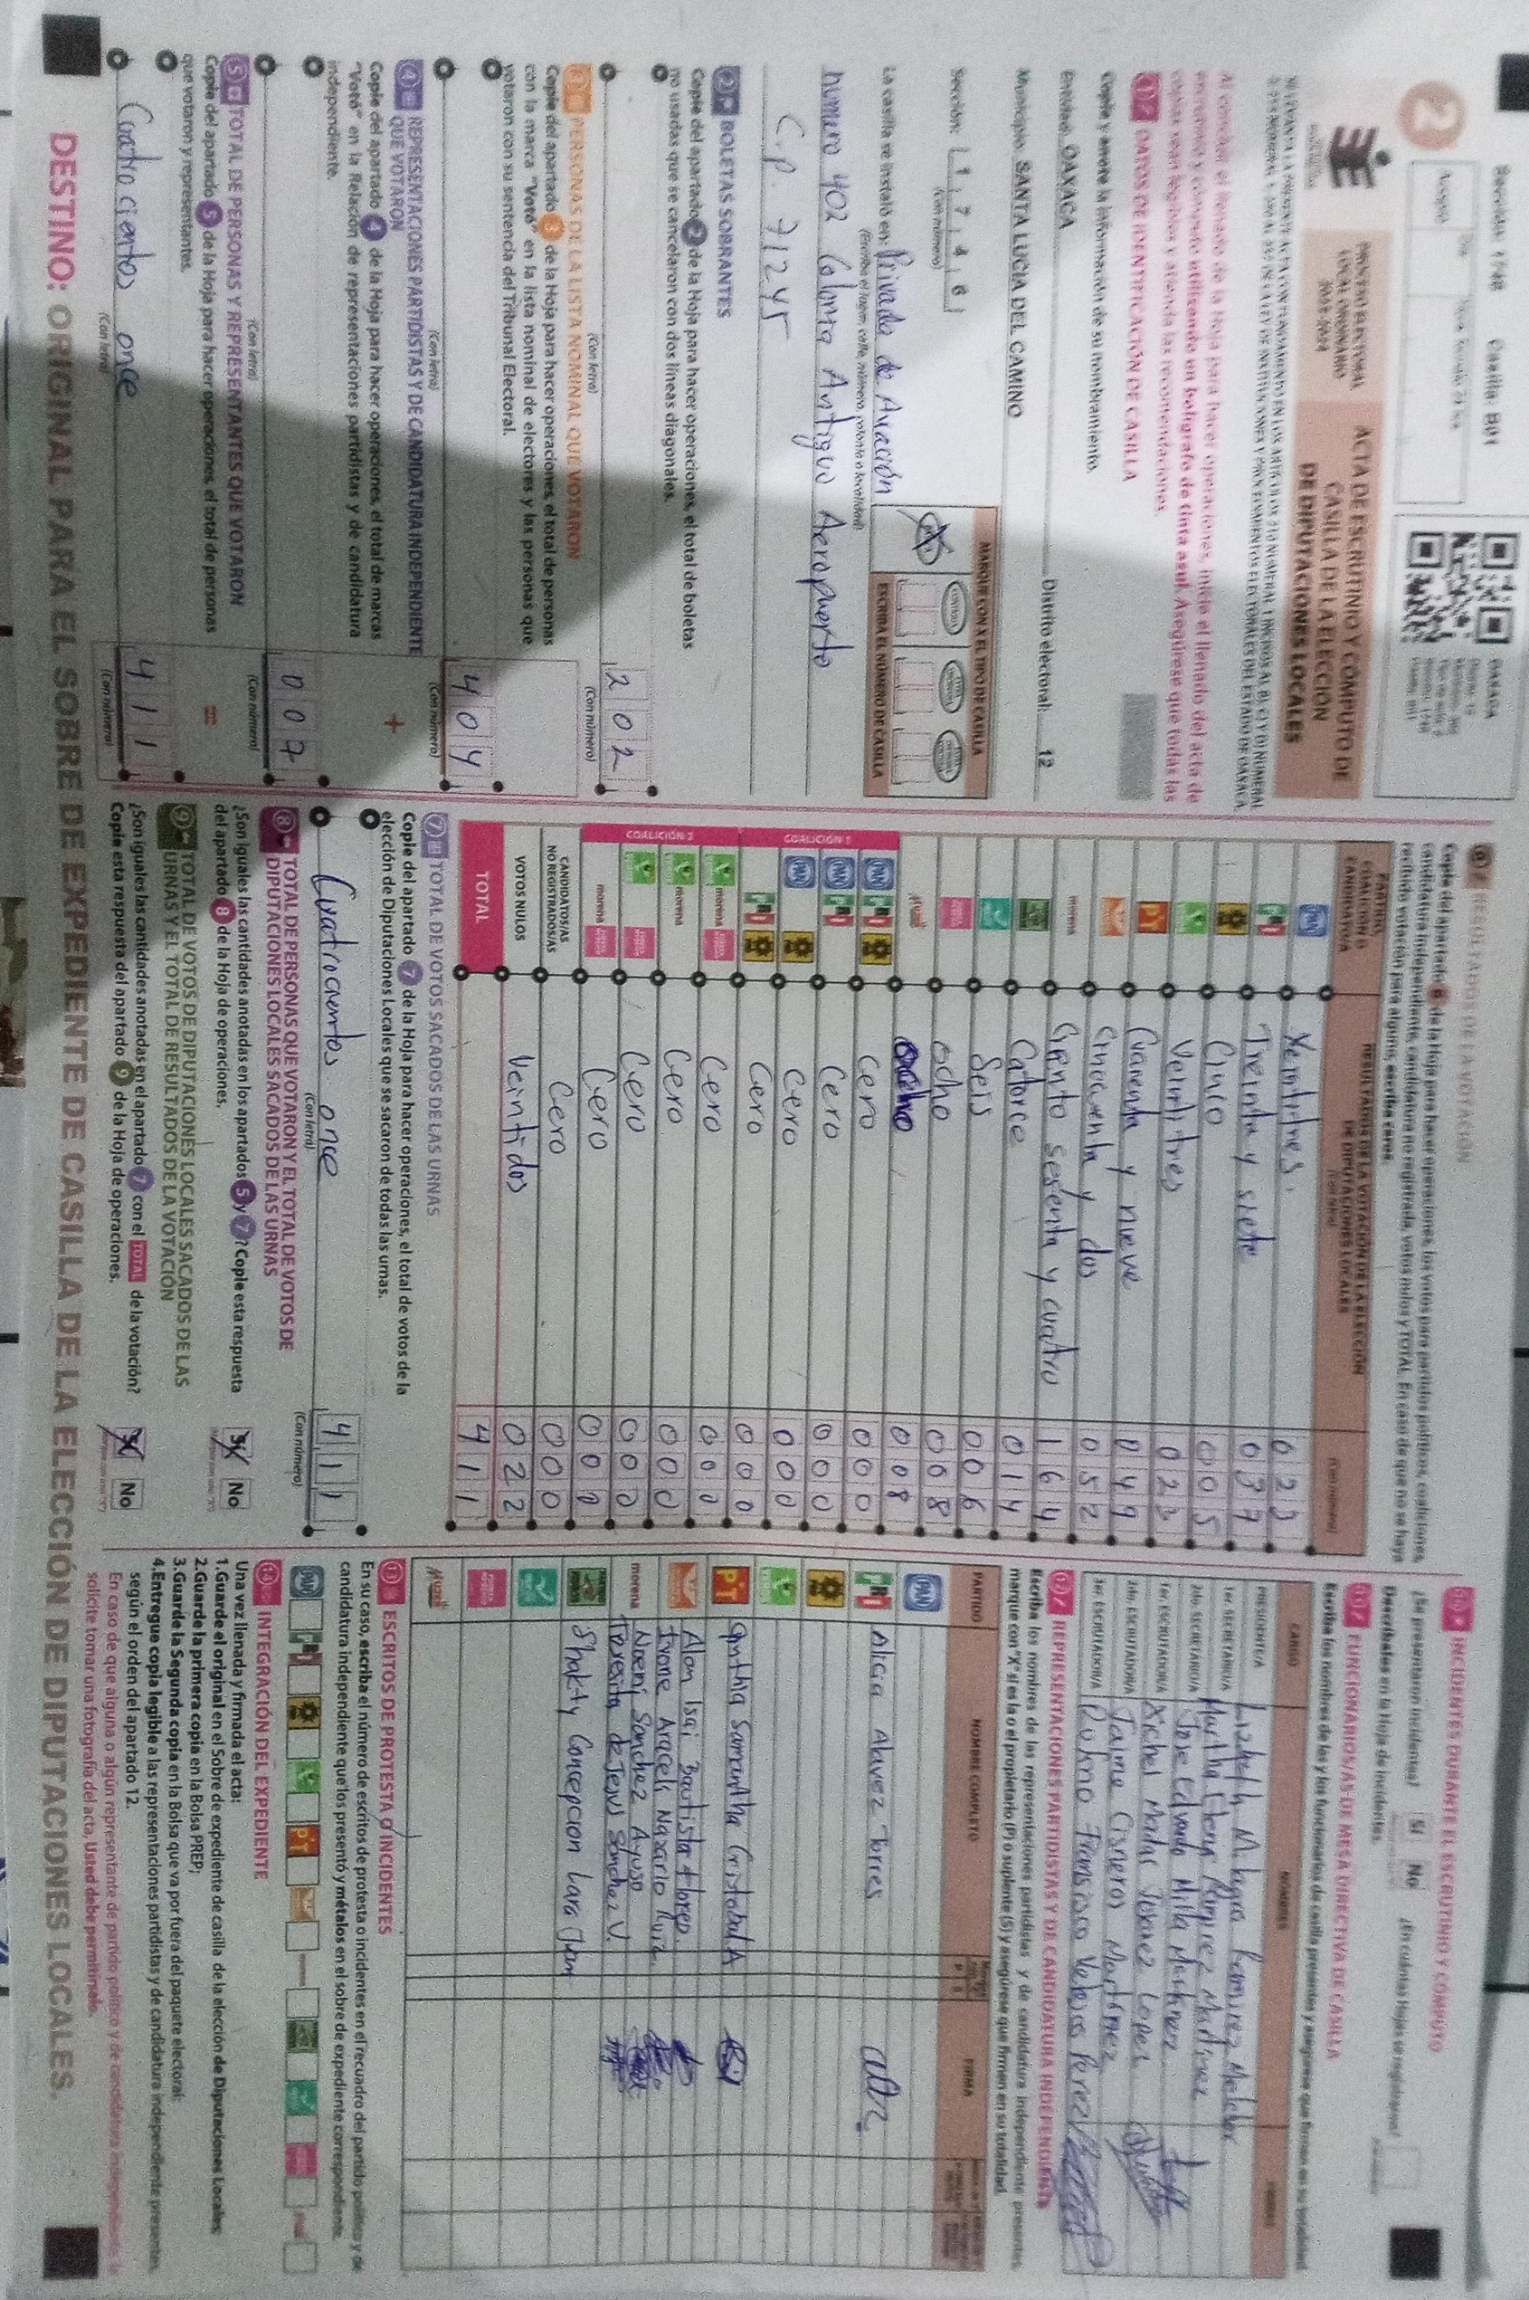 Sección: 1746 Casilla: B01
OAXACA
2
PROCESO ELECTORAL
LOCAL ORDINARIO
2023-2024
ACTA DE ESCRUTINIO Y CÓMPUTO DE
CASILLA DE LA ELECCIÓN
DE DIPUTACIONES LOCALES
Al concluir el llenado de la Hoja para hacer operaciones, inicie el llenado del acta de
escrutinio y cómputo utilizando un bolígrafo de tinta azul. Asegúrese que todas las
copias sean legibles y atienda las recomendaciones.
1 DATOS DE IDENTIFICACIÓN DE CASILLA
Copie y anote la información de su nombramiento.
Entidad: OAXACA Distrito electoral: 12
Municipio: SANTA LUCÍA DEL CAMINO
Sección: 1 7 4 6
(Con número)
MARQUE CON X EL TIPO DE CASILLA
ESCRIBA EL NÚMERO DE CASILLA
La casilla se instaló en: Privada de Aviación
(Escriba el lugar, calle, número, colonia o localidad)
numero 402 Colonia Antiguo Aeropuerto
C.P. 71245
2 BOLETAS SOBRANTES
Copie del apartado 2 de la Hoja para hacer operaciones, el total de boletas
no usadas que se cancelaron con dos líneas diagonales.
2 0 2
(Con letra) (Con número)
3 PERSONAS DE LA LISTA NOMINAL QUE VOTARON
Copie del apartado 3 de la Hoja para hacer operaciones, el total de personas
con la marca "Votó" en la lista nominal de electores y las personas que
votaron con su sentencia del Tribunal Electoral.
4 0 4
(Con letra) (Con número)
4 REPRESENTACIONES PARTIDISTAS Y DE CANDIDATURA INDEPENDIENTE
QUE VOTARON
+
Copie del apartado 4 de la Hoja para hacer operaciones, el total de marcas
"Votó" en la Relación de representaciones partidistas y de candidatura
independiente.
0 0 7
(Con letra) (Con número)
5 TOTAL DE PERSONAS Y REPRESENTANTES QUE VOTARON
=
Copie del apartado 5 de la Hoja para hacer operaciones, el total de personas
que votaron y representantes.
Cuatro cientos once 4 1 1
(Con letra) (Con número)
6 RESULTADOS DE LA VOTACIÓN
Copie del apartado 6 de la Hoja para hacer operaciones, los votos para partidos políticos, coaliciones,
candidatura independiente, candidatura no registrada, votos nulos y TOTAL. En caso de que no se haya
recibido votación para alguno, escriba ceros.
PARTIDO,
COALICIÓN O
CANDIDATO/A
RESULTADOS DE LA VOTACIÓN DE LA ELECCIÓN
DE DIPUTACIONES LOCALES
(Con letra)
(Con número)
PAN Veintitres 0 2 3
PRI Treinta y siete 0 3 7
Cinco 0 0 5
Veintitres 0 2 3
PT Cuarenta y nueve 0 4 9
Cincuenta y dos 0 5 2
morena Ciento sesenta y cuatro 1 6 4
Catorce 0 1 4
Seis 0 0 6
ocho 0 0 8
ocho 0 0 8
COALICIÓN 1
PAN PRI cero 0 0 0
PAN PRI Cero 0 0 0
PAN cero 0 0 0
PRI Cero 0 0 0
COALICIÓN 2
morena Cero 0 0 0
morena Cero 0 0 0
Cero 0 0 0
morena Cero 0 0 0
CANDIDATOS/AS
NO REGISTRADOS/AS Cero 0 0 0
VOTOS NULOS Veintidos 0 2 2
TOTAL 4 1 1
7 TOTAL DE VOTOS SACADOS DE LAS URNAS
Copie del apartado 7 de la Hoja para hacer operaciones, el total de votos de la
elección de Diputaciones Locales que se sacaron de todas las urnas.
Cuatrocientos once 4 1 1
(Con letra) (Con número)
8 TOTAL DE PERSONAS QUE VOTARON Y EL TOTAL DE VOTOS DE
DIPUTACIONES LOCALES SACADOS DE LAS URNAS
¿Son iguales las cantidades anotadas en los apartados 5 y 7? Copie esta respuesta
del apartado 8 de la Hoja de operaciones.
Sí No
9 TOTAL DE VOTOS DE DIPUTACIONES LOCALES SACADOS DE LAS
URNAS Y EL TOTAL DE RESULTADOS DE LA VOTACIÓN
¿Son iguales las cantidades anotadas en el apartado 7 con el TOTAL de la votación?
Copie esta respuesta del apartado 9 de la Hoja de operaciones.
Sí No
10 INCIDENTES DURANTE EL ESCRUTINIO Y CÓMPUTO
¿Se presentaron incidentes? Sí No ¿En cuántas Hojas se registraron?
Descríbalos en la Hoja de incidentes.
11 FUNCIONARIOS/AS DE MESA DIRECTIVA DE CASILLA
Escriba los nombres de las y los funcionarios de casilla presentes y asegúrese que firmen en su totalidad.
CARGO NOMBRES FIRMAS
PRESIDENTE/A
1er. SECRETARIO/A Martha Elena Ramirez Martinez
2do. SECRETARIO/A Jose Eduardo
1er. ESCRUTADOR/A Xichel
2do. ESCRUTADOR/A Jaime Cisneros Martinez
3er. ESCRUTADOR/A Rufino Fransisco Velasco Perez
12 REPRESENTACIONES PARTIDISTAS Y DE CANDIDATURA INDEPENDIENTE
Escriba los nombres de las representaciones partidistas y de candidatura independiente presentes,
marque con "X" si es la o el propietario (P) o suplente (S) y asegúrese que firmen en su totalidad.
PARTIDO NOMBRE COMPLETO FIRMA
PAN
PRI Alicia Alavez Torres
PT Cynthia Samantha Cristobal A
Alan Isai Bautista Flores
Ivone Araceli Nazario Ruiz
morena Noemi Sanchez Ayuso
Teresita de Jesus Sanchez V.
Shakty Concepcion Lara
13 ESCRITOS DE PROTESTA O INCIDENTES
En su caso, escriba el número de escritos de protesta o incidentes en el recuadro del partido político y de
candidatura independiente que los presentó y métalos en el sobre de expediente correspondiente.
PAN PRI PT
14 INTEGRACIÓN DEL EXPEDIENTE
Una vez llenada y firmada el acta:
1.Guarde el original en el Sobre de expediente de casilla de la elección de Diputaciones Locales;
2.Guarde la primera copia en la Bolsa PREP;
3.Guarde la Segunda copia en la Bolsa que va por fuera del paquete electoral;
4.Entregue copia legible a las representaciones partidistas y de candidatura independiente presentes,
según el orden del apartado 12.
En caso de que alguna o algún representante de partido político y de candidatura independiente, le
solicite tomar una fotografía del acta, Usted debe permitírselo.
DESTINO: ORIGINAL PARA EL SOBRE DE EXPEDIENTE DE CASILLA DE LA ELECCIÓN DE DIPUTACIONES LOCALES.